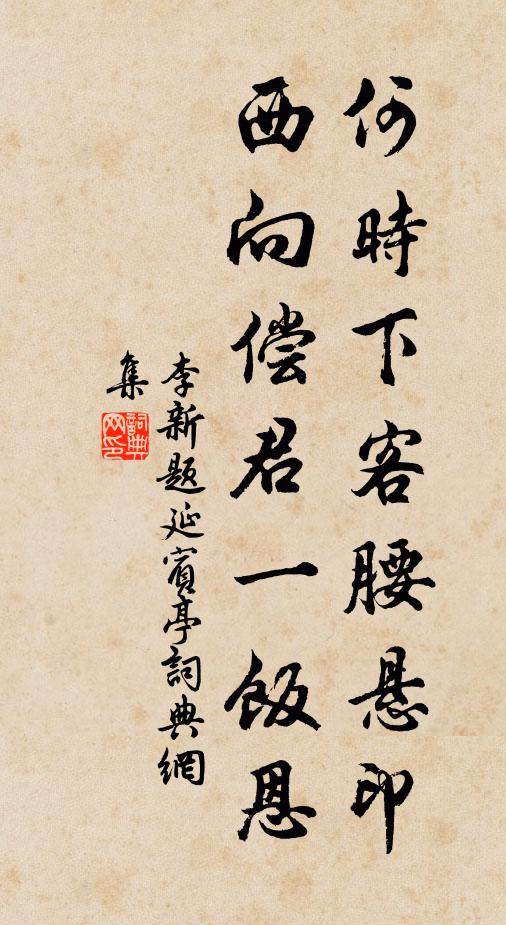 何時下客腰悬印
西向偿君一飯恩
李新题延賓亭詞典網
集
詞典
网印